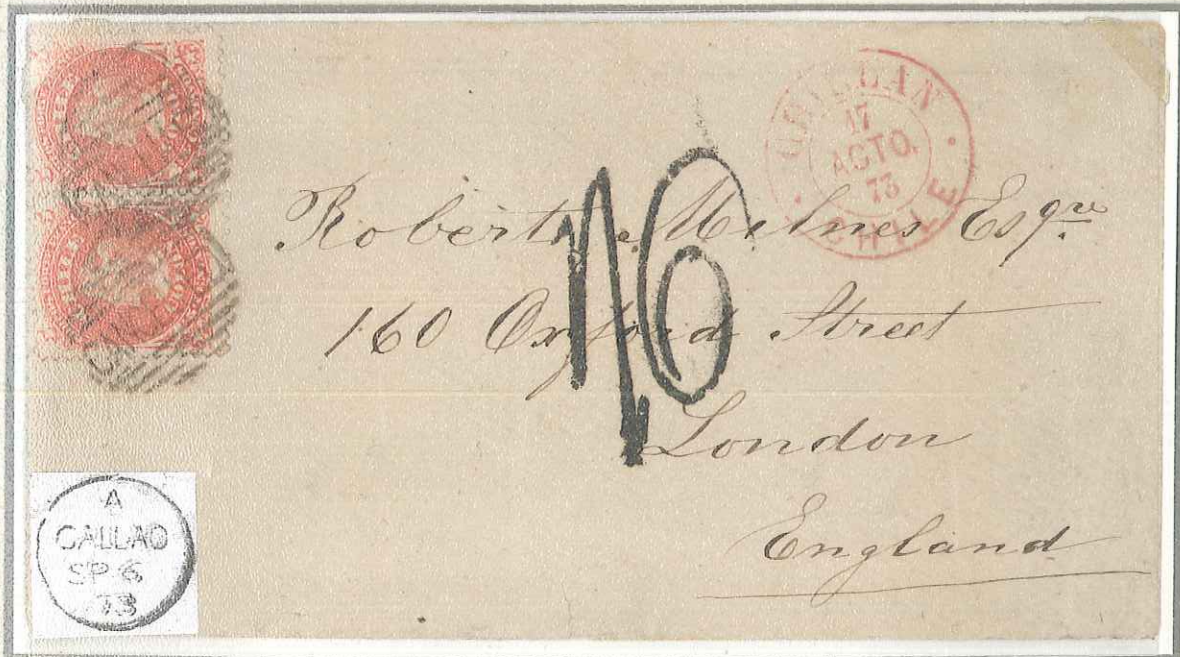 CHILLAN
17
AGTO.
73
CHILE
Robert Milnes Esqre
160 Oxford Street
London
England
1/6
A
CALLAO
SP 6
73